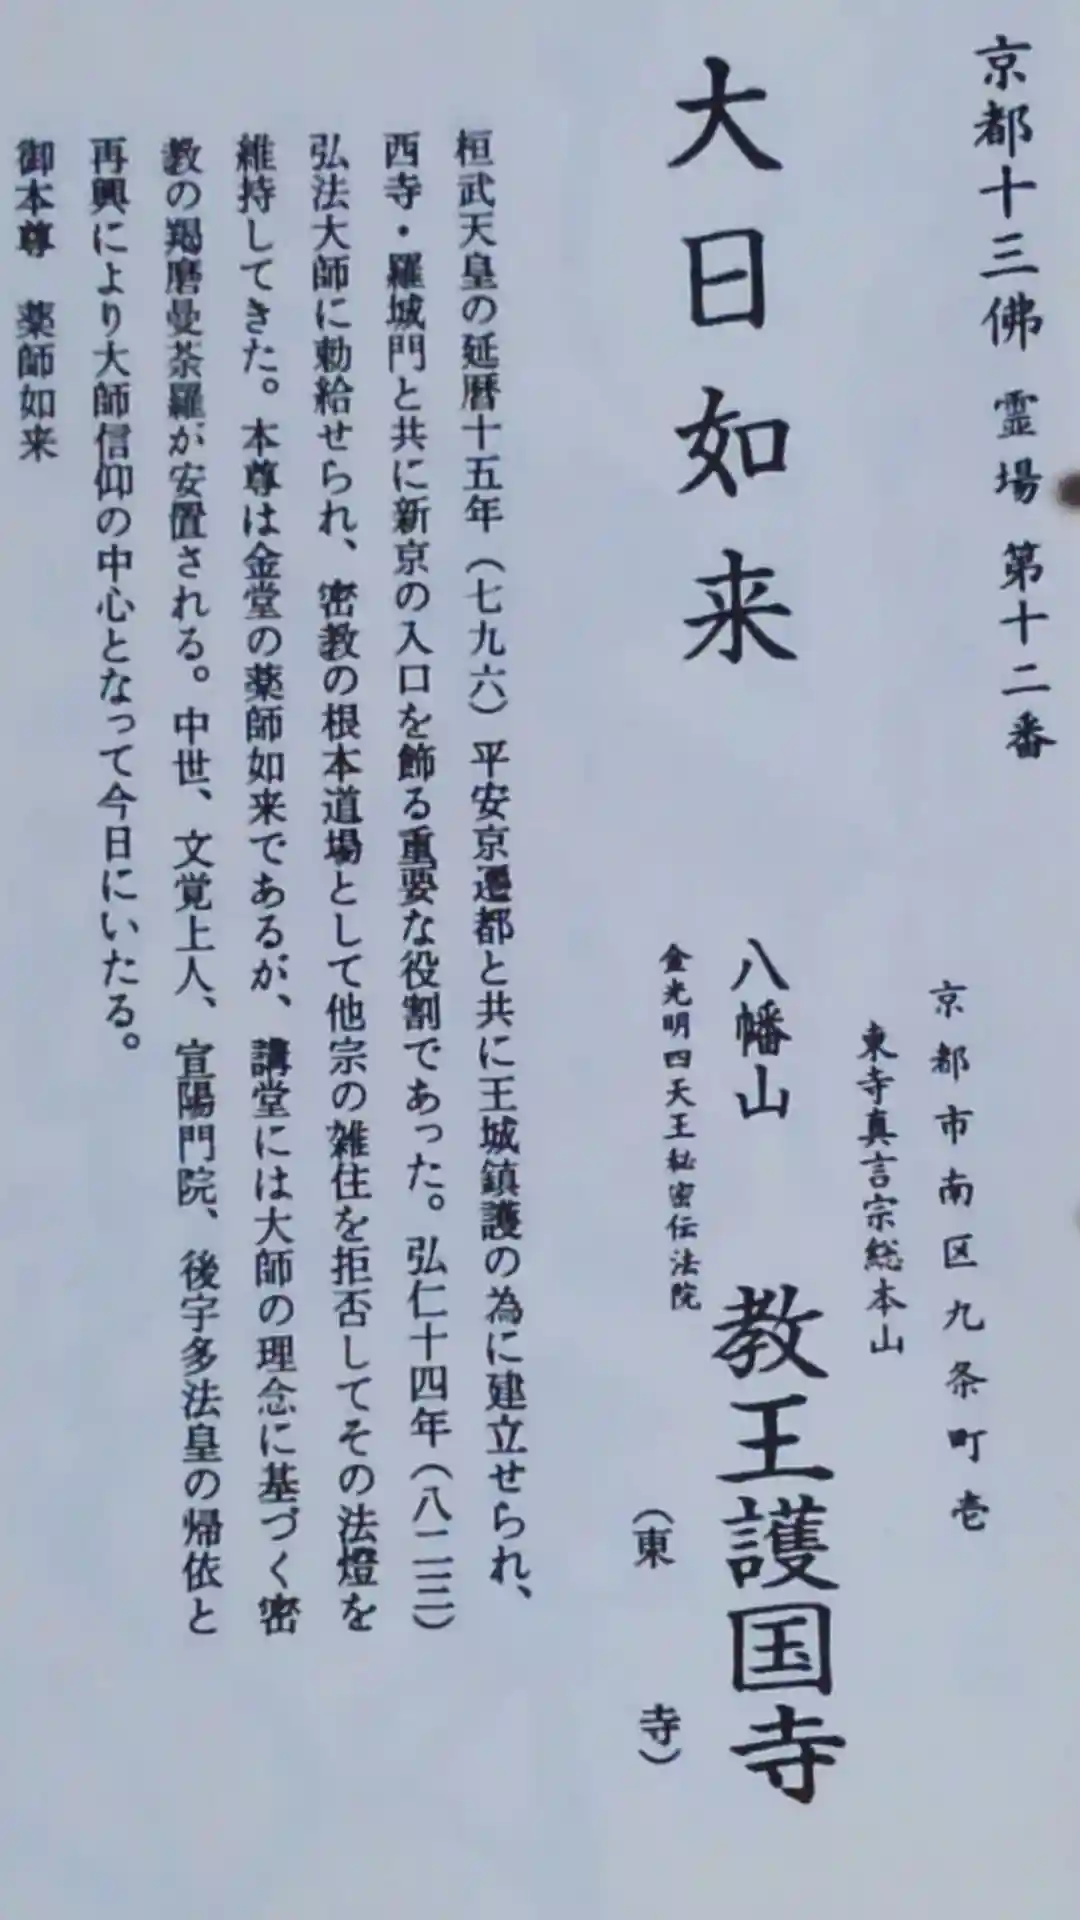 京都十三佛 霊場 第十二番
大日如来
京都市南区九条町壱
東寺真言宗総本山
八幡山 教王護国寺
金光明四天王秘密伝法院
（東 寺）
桓武天皇の延暦十五年（七九六）平安京遷都と共に王城鎮護の為に建立せられ、
西寺・羅城門と共に新京の入口を飾る重要な役割であった。弘仁十四年（八二三）
弘法大師に勅給せられ、密教の根本道場として他宗の雑住を拒否してその法燈を
維持してきた。本尊は金堂の薬師如来であるが、講堂には大師の理念に基づく密
教の羯磨曼荼羅が安置される。中世、文覚上人、宣陽門院、後宇多法皇の帰依と
再興により大師信仰の中心となって今日にいたる。
御本尊 薬師如来